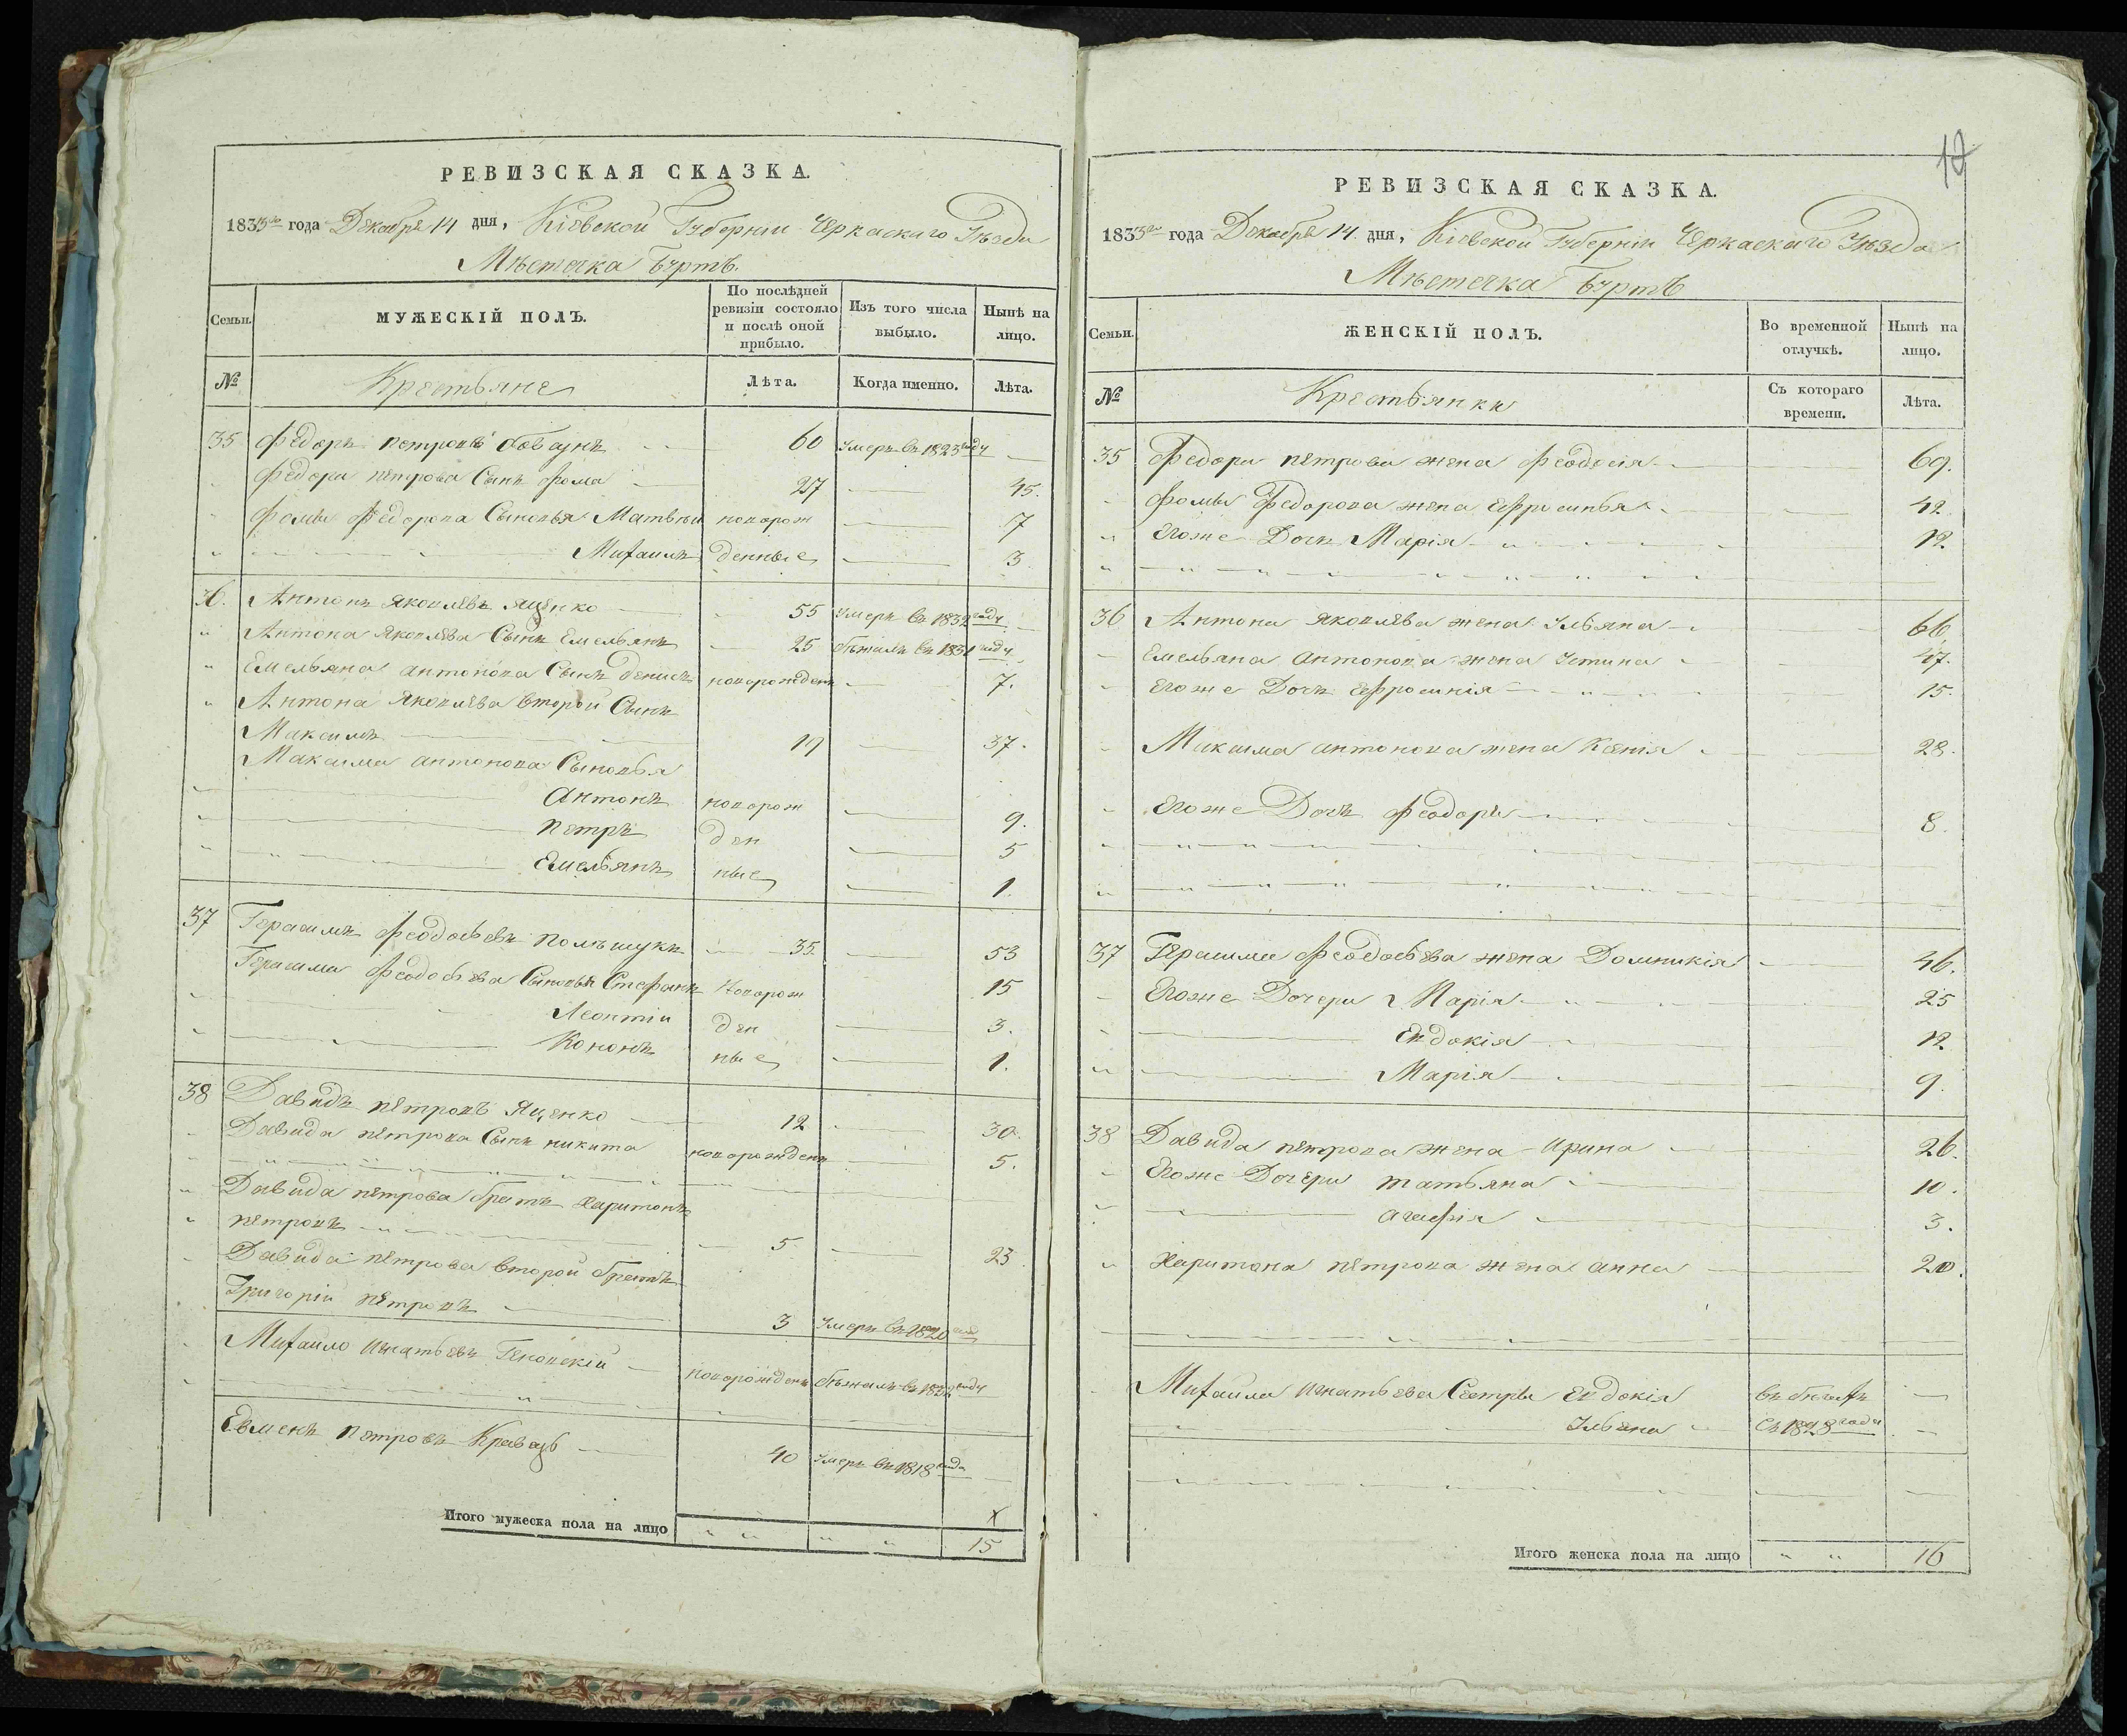 РЕВИЗСКАЯ СКАЗКА.
1833го года Декабря 14 дня, Кіевской Губерніи Черкаскаго Уѣзда
Мѣстечка Буртъ.
Семьи.
МУЖЕСКІЙ ПОЛЪ.
По послѣдней ревизіи состояло и послѣ оной прибыло.
Изъ того числа выбыло.
Нынѣ на лицо.
№
Крестьяне
Лѣта.
Когда именно.
Лѣта.
35 Федоръ петровъ 60 умеръ въ 1823 году
Федора петрова Сынъ фома 27 45.
Фомы Федорова Сыновья Матвѣй новорож 7
Михаилъ денные 3
36. Антонъ яковлевъ яценко 55 умеръ въ 1832 году
Антона яковлева Сынъ Емельянъ 25 бѣжалъ въ 1831 году
Емельяна антонова Сынъ денисъ новорожденъ 7.
Антона яковлева второй Сынъ
Максимъ 19 37.
Максима антонова Сыновья
Антонъ новорож 9.
петръ ден 5
Емельянъ ные 1.
37 Герасимъ феодосьевъ полѣщукъ 35. 53
Герасима феодосьева Сыновья Стефанъ новорож 15
Леонтіи ден 3.
Кононъ ные 1.
38 Давидъ петровъ Яценко 12 30.
Давида петрова Сынъ никита новорожденъ 5.
Давида петрова братъ харитонъ
петровъ 5 23
Давида петрова второй братъ
Григорій петровъ 3 умеръ въ 1820 году
Михайло игнатьевъ новорожденъ бѣжалъ въ году
Евменъ петровъ Кравецъ 40 умеръ въ 1818 году
Итого мужеска пола на лицо 15
12
РЕВИЗСКАЯ СКАЗКА.
1833го года Декабря 14 дня, Кіевской Губерніи Черкаскаго Уѣзда
Мѣстечка Буртъ
Семьи.
ЖЕНСКІЙ ПОЛЪ.
Во временной отлучкѣ.
Нынѣ на лицо.
№
Крестьянки
Съ котораго времени.
Лѣта.
35 Федора петрова жена феодосія 69.
фомы Федорова жена Ефросинья 42
Егоже Дочь Марія 12.
36 Антона яковлева жена ульяна 66
Емельяна антонова жена устина 47.
Егоже Дочь Ефросинія 15.
Максима антонова жена Ксенія 28.
Егоже Дочь феодора 8.
37 Герасима феодосьева жена Домникія 46.
Егоже Дочери Марія 25
Евдокія 12
Марія 9.
38 Давида петрова жена ирина 26.
Егоже Дочери татьяна 10.
агафія 3.
Харитона петрова жена анна 20.
Михайла игнатьева Сестры Евдокія въ бѣгахъ
Ульяна съ 1828 года
Итого женска пола на лицо 16